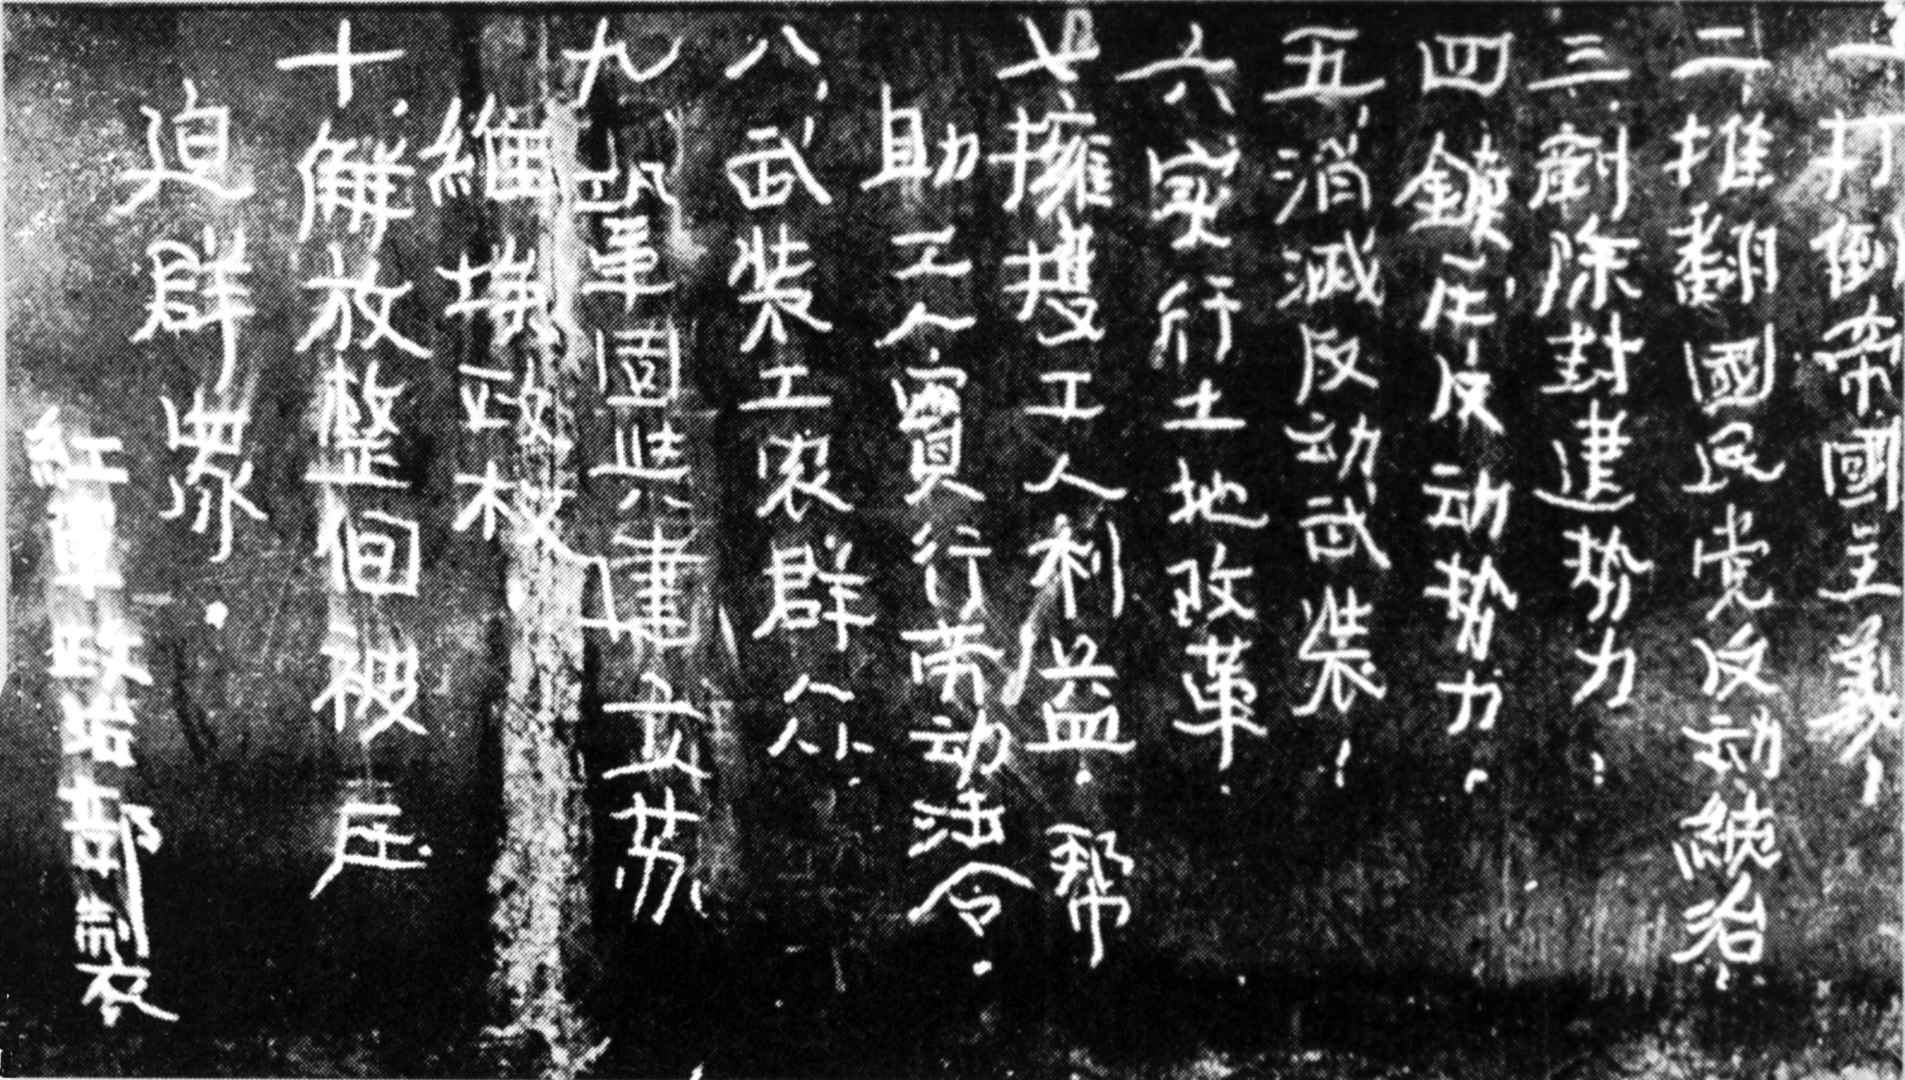 一 打倒帝國主義!
二 推翻國民党反动統治.
三.剷除封建势力.
四 鎮压反动势力.
五.消滅反动武装!
六 实行土地改革.
七 擁護工人利益.帮
助工人實行劳动法令.
八.武装工农群众.
九 鞏固與建立苏
維埃政权
十.解放整個被压
迫群眾.
紅軍政治部製